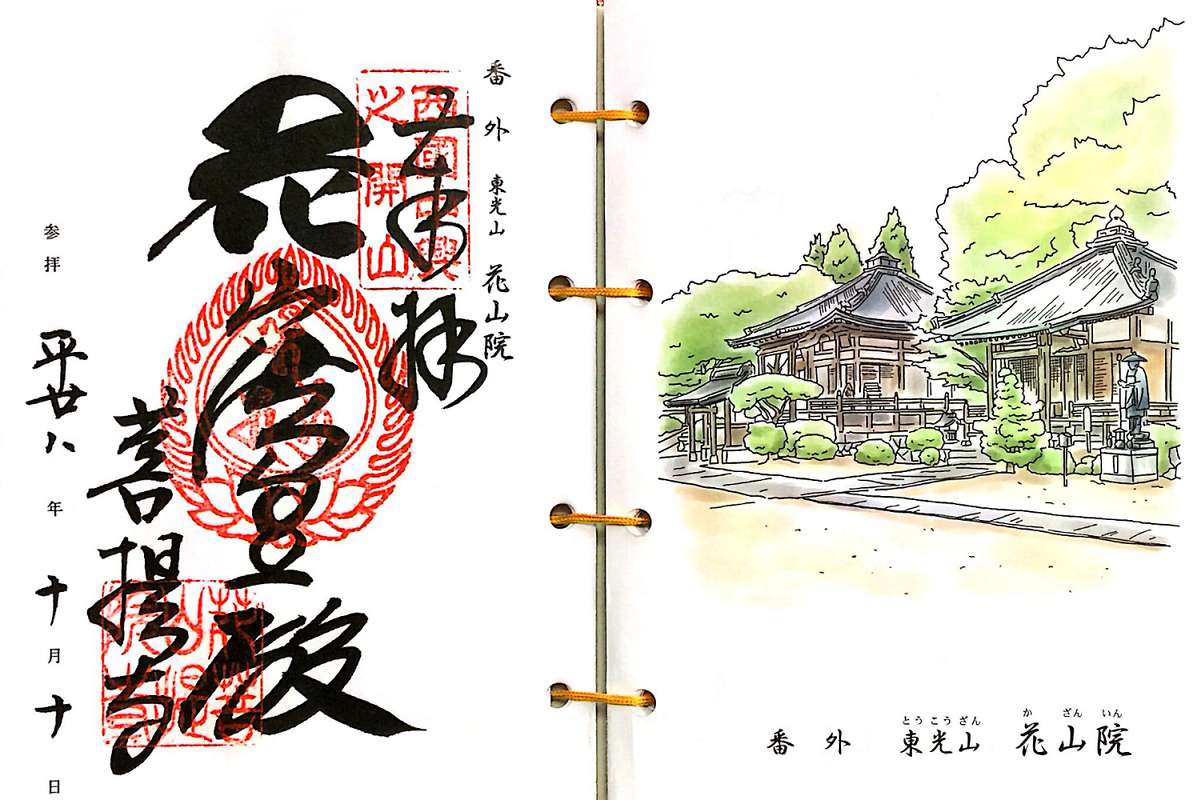 番外 東光山 花山院
奉拝
西國中興
之開山
花山法皇殿
菩提寺
参拝 平廿八年十月十日
番外 東光山 花山院
とうこうざん か ざん いん